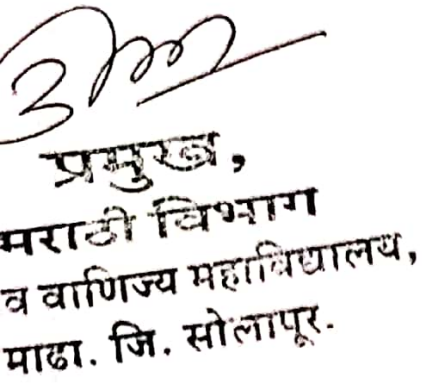 प्रमुख,
मराठी विभाग
व वाणिज्य महाविद्यालय,
माढा. जि. सोलापूर.